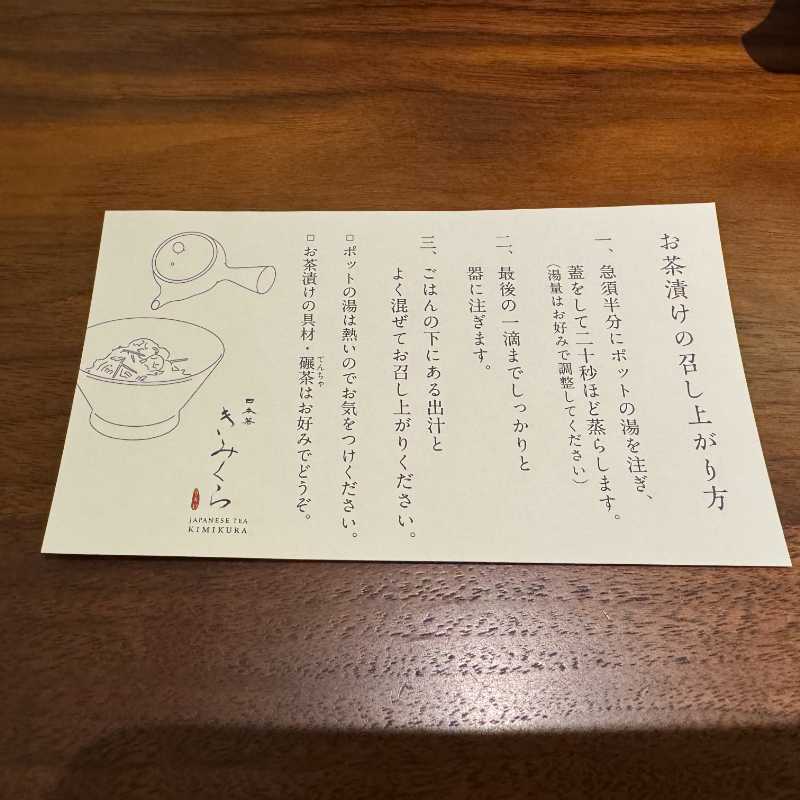 お茶漬けの召し上がり方
一、急須半分にポットの湯を注ぎ、
蓋をして二十秒ほど蒸らします。
（湯量はお好みで調整してください）
二、最後の一滴までしっかりと
器に注ぎます。
三、ごはんの下にある出汁と
よく混ぜてお召し上がりください。
□ ポットの湯は熱いのでお気をつけください。
□ お茶漬けの具材・碾茶はお好みでどうぞ。
てんちゃ
日本茶
きみくら
JAPANESE TEA
KIMIKURA